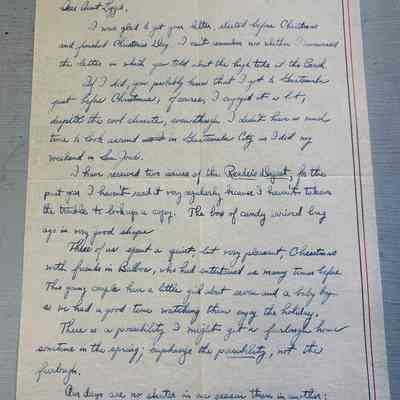 Dear Aunt Lizzie,
I was glad to get your letter, started before Christmas
and finished Christmas Day. I can't remember now whether I answered
the letter in which you told about the high tide at the
If I did, you probably know that I got to Guatemala
just before Christmas; of course, I enjoyed it a lot,
despite the cool climate, even though I didn't have as much
time to look around in Guatemala City as I did my
weekend in San José.
I have received two issues of the Reader's Digest; for the
past year I haven't read it very regularly because I haven't taken
the trouble to look up a copy. The box of candy arrived long
ago in very good shape.
Three of us spent a quiet but very pleasant Christmas
with friends in Balboa, who had entertained us many times before.
This young couple have a little girl about seven and a baby boy
so we had a good time watching them enjoy the holiday.
There is a possibility I might get a furlough home
sometime in the spring; emphasize the possibility, not the
furlough.
Our days are no shorter in one season than in another;